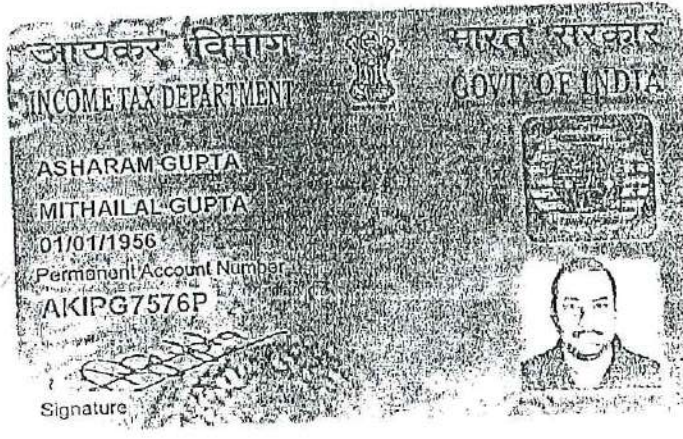 आयकर विभाग
भारत सरकार
INCOME TAX DEPARTMENT
GOVT. OF INDIA
ASHARAM GUPTA
MITHAILAL GUPTA
01/01/1956
Permanent Account Number
AKIPG7576P
Signature